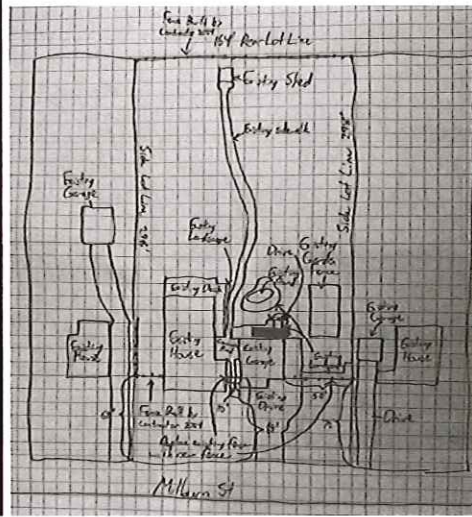 Fence Built by
Contractor 2004
154' Rear Lot Line
Existing Shed
Existing sidewalk
Side Lot Line 298'
Side Lot Line 298'
Existing
Garage
Existing
Landscape
Drive
Existing
Garden
Fence
Existing Deck
Existing
House
Existing
House
Existing
Garage
Existing
Garage
Existing
House
Existing
Drive
Drive
50'
Fence Built by
Contractor 2004
Replace existing fence
with new fence
Milburn St